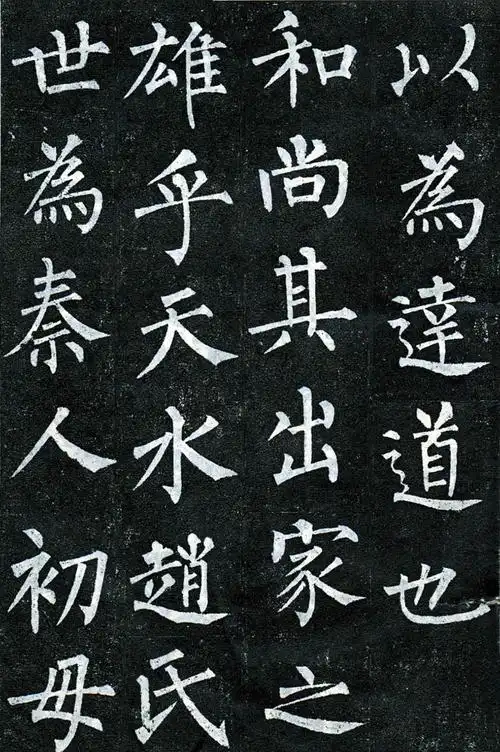 以為達道也
和尚其出家之
雄乎天水趙氏
世為秦人初毋